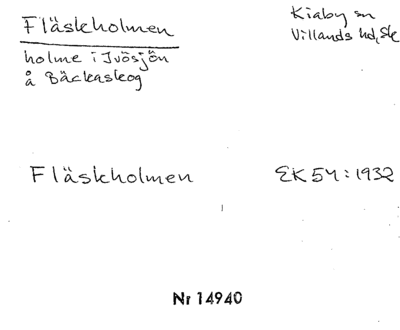 Fläskholmen
holme i Ivösjön
å Bäckaskog
Kiaby sn
Villands hd, Sk
Fläskholmen
EK 54:1932
Nr 14940